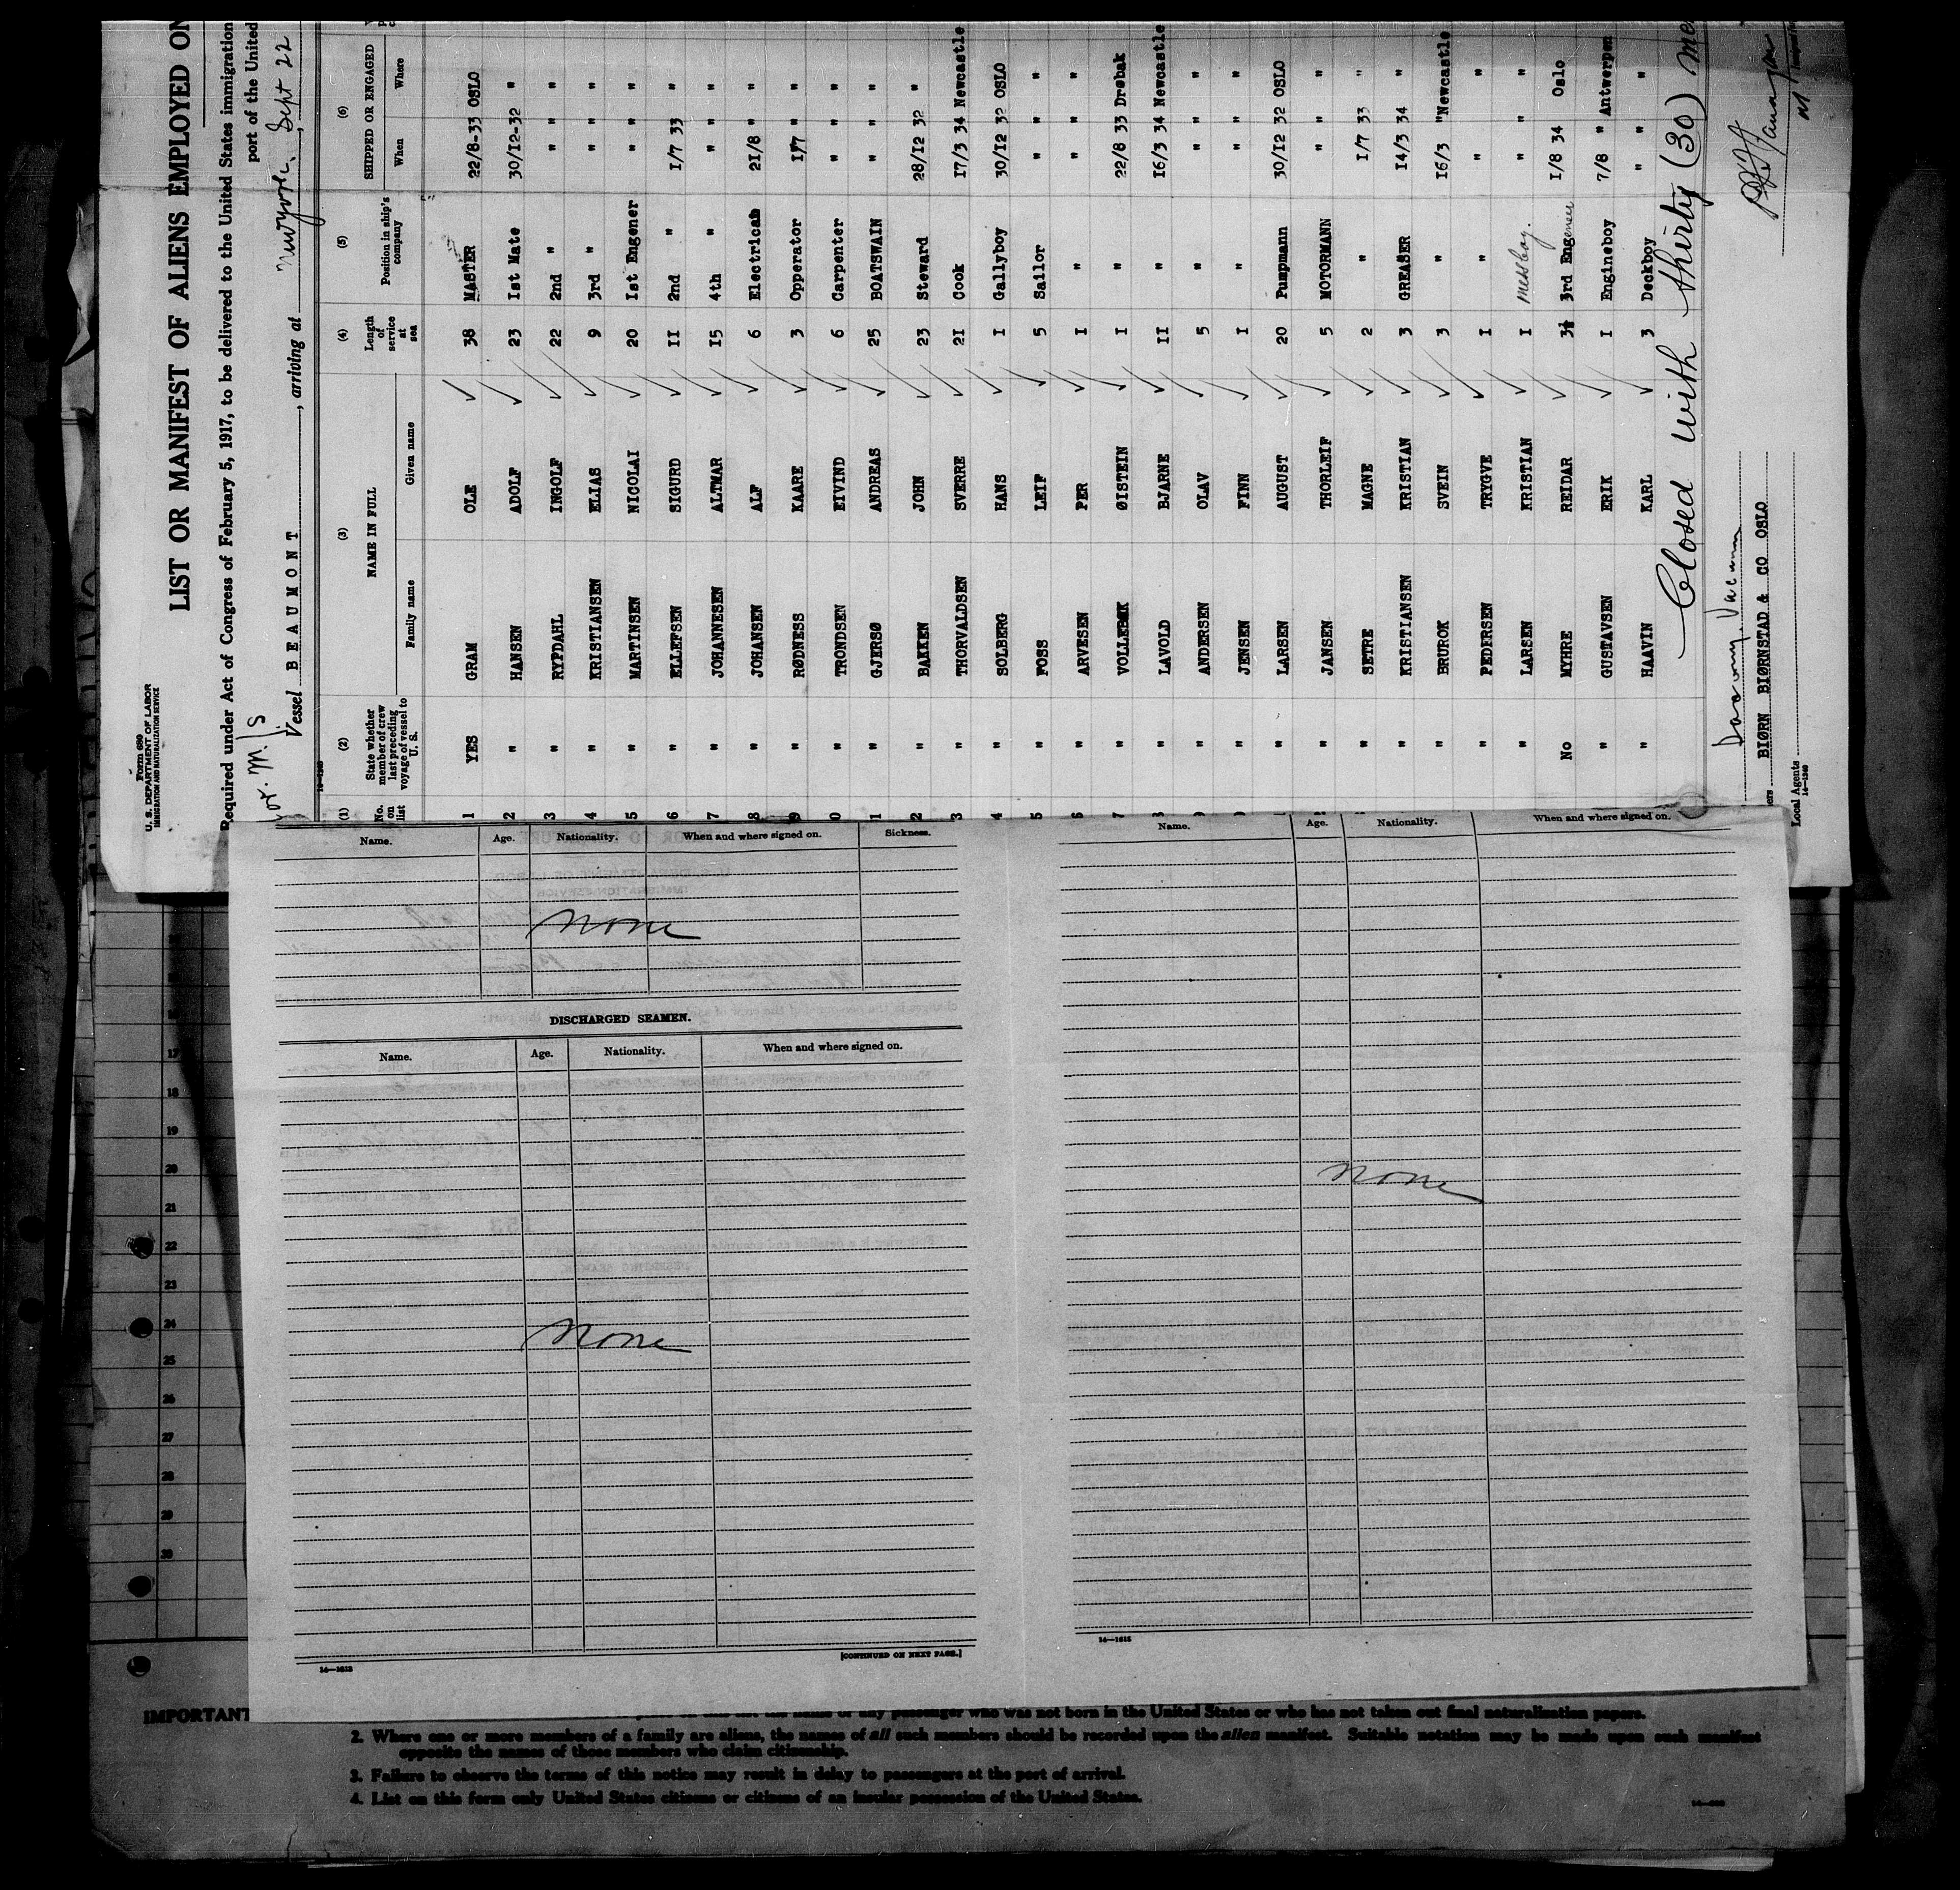 Form 680
U. S. DEPARTMENT OF LABOR
IMMIGRATION AND NATURALIZATION SERVICE
LIST OR MANIFEST OF ALIENS EMPLOYED ON
Required under Act of Congress of February 5, 1917, to be delivered to the United States immigration
port of the United
Nor. M/S
Vessel BEAUMONT, arriving at New York, Sept 22
14-1240
(1) (2) (3) (4) (5) (6)
No. on list State whether member of crew last preceding voyage of vessel to U. S. NAME IN FULL Length of service at sea Position in ship's company SHIPPED OR ENGAGED
Family name Given name When Where
1 YES GRAM OLE 38 MASTER 22/8-33 OSLO
2 " HANSEN ADOLF 23 Ist Mate 30/12-32 "
3 " RYPDAHL INGOLF 22 2nd " " "
4 " KRISTIANSEN ELIAS 9 3rd " " "
5 " MARTINSEN NICOLAI 20 Ist Engener " "
6 " ELLEFSEN SIGURD II 2nd " I/7 33 "
7 " JOHANNESEN ALTMAR I5 4th " " "
8 " JOHANSEN ALF 6 Electrican 2I/8 " "
9 " RØDNESS KAARE 3 Opperator I/7 " "
0 " TRONDSEN EIVIND 6 Carpenter " " "
1 " GJERSØ ANDREAS 25 BOATSWAIN " " "
2 " BAKKEN JOHN 23 Steward 28/I2 32 "
3 " THORVALDSEN SVERRE 2I Cook I7/3 34 Newcastle
4 " SOLBERG HANS I Gallyboy 30/I2 32 OSLO
5 " FOSS LEIF 5 Sailor " " "
6 " ARVESEN PER I " " " "
7 " VOLLEBØK ØISTEIN I " 22/8 33 Drøbak
8 " LAVOLD BJARNE II " I6/3 34 Newcastle
9 " ANDERSEN OLAV 5 " " " "
" JENSEN FINN I " " " "
" LARSEN AUGUST 20 Pumpmann 30/I2 32 OSLO
" JANSEN THORLEIF 5 MOTORMANN " " "
" SETRE MAGNE 2 " I/7 33 "
" KRISTIANSEN KRISTIAN 3 GREASER I4/3 34 "
" BRUROK SVEIN 3 " I6/3 " Newcastle
" PEDERSEN TRYGVE I " " " "
" LARSEN KRISTIAN I messboy. " " "
No MYHRE REIDAR 3½ 3rd Engener I/8 34 Oslo
" GUSTAVSEN ERIK I Engineboy 7/8 " Antwerpen
" HAAVIN KARL 3 Deckboy " " "
Closed with thirty (30) me
BIØRN BIØRNSTAD & CO OSLO
Local Agents
14-1240
Name. Age. Nationality. When and where signed on. Sickness.
None
DISCHARGED SEAMEN.
Name. Age. Nationality. When and where signed on.
None
[CONTINUED ON NEXT PAGE.]
14-1615
Name. Age. Nationality. When and where signed on.
None
14-1615
17
18
19
20
21
22
23
24
25
26
27
28
29
30
IMPORTANT
any passenger who was not born in the United States or who has not taken out final naturalization papers.
2. Where one or more members of a family are aliens, the names of all such members should be recorded upon the alien manifest. Suitable notation may be made upon such manifest
opposite the names of those members who claim citizenship.
3. Failure to observe the terms of this notice may result in delay to passengers at the port of arrival.
4. List on this form only United States citizens or citizens of an insular possession of the United States.